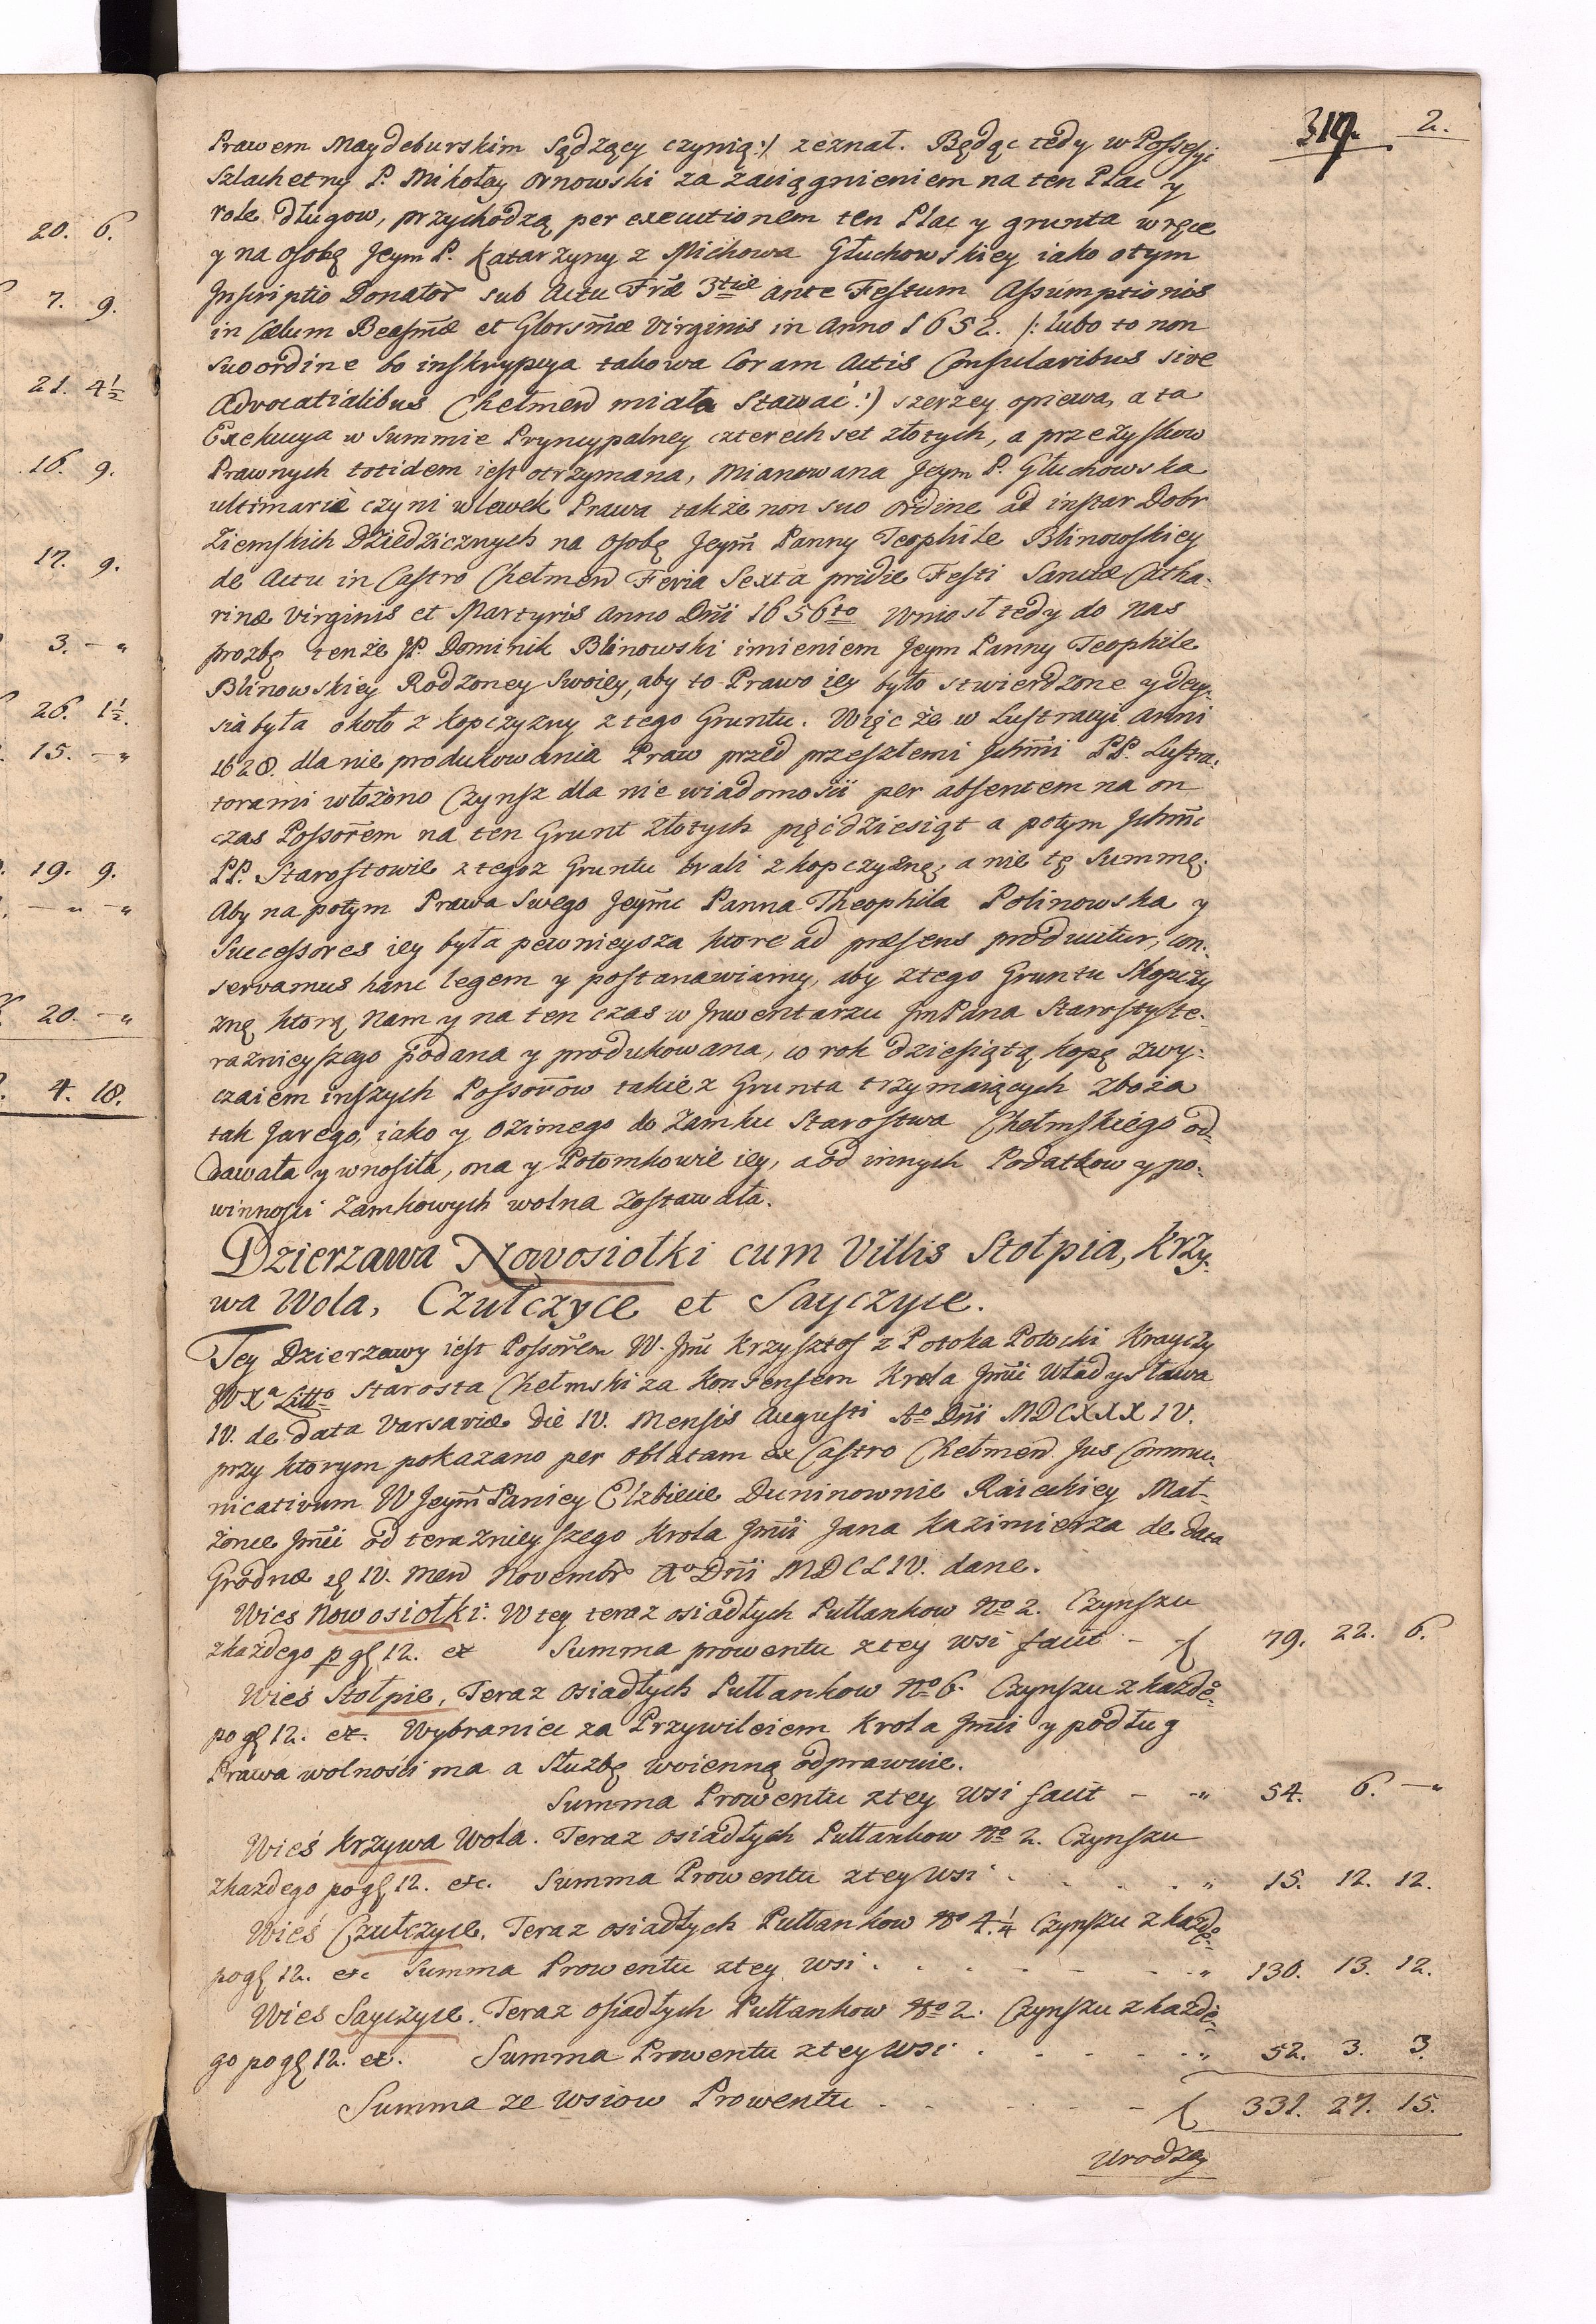 319. 2.
Prawem Maydeburskim Sądzący czynią:/ zeznał. Będąc tedy w Possessyi
Szlachetny P. Mikołay Ornowski za zaciągnieniem na ten Plac y
role długow, przychodzą per executionem ten Plac y grunta w ręce
y na osobę Jeym P. Katarzyny z Michowa Głuchowskiey iako o tym
Inscriptio Donator sub Actu Fræ 3tiæ ante Festum Assumptionis
in Cœlum Beasmæ et Glorsmæ Virginis in Anno 1652. /: lubo to non
suo ordine bo inskrypcya takowa Coram Actis Consularibus sive
Advocatialibus Chełmen miała stawać:/ szerzey opiewa, a ta
Exekucya w Summie Pryncypalney czterech set złotych, a przezyskow
Prawnych totidem iest otrzymana, mianowana Jeym P. Głuchowska
ultimarie czyni wlewek Prawa także non suo ordine ad instar Dobr
Ziemskich Dziedzicznych na osobę Jeym Panny Teophile Blinowskiey
de Actu in Castro Chełmen Feria Sexta pridie Festi Sanctæ Catha-
rinæ Virginis et Martyris Anno Dni 1656to Wniosł tedy do nas
prozbę tenże JP. Dominik Blinowski imieniem Jeym Panny Teophile
Blinowskiey Rodzoney swoiey, aby to Prawo iey było stwierdzone y decy-
sia była około z kopczyzny z tego Gruntu. Więc że w Lustracyi Anni
1628. dla nie produkowania Praw przed przeszłemi Ichmi PP. Lustra-
torami włożono Czynsz dla nie wiadomości per absentem na on
czas Possorem na ten Grunt złotych pięcdziesiąt a potym Ichmc
PP. Starostowie z tegoz Gruntu brali z kopczyznę, a nie tę Summę.
Aby na potym Prawa swego Jeymc Panna Theophila Polinowska y
Successores iey była pewnieysza ktore ad præsens producitur, con-
servamus hanc legem y postanawiamy, aby z tego Gruntu Skopczy
znę ktorą nam y na ten czas w Inwentarzu Jm Pana Starosty te-
raznieyszego podana y produkowana, co rok dziesiątą kopę zwy-
czaiem inszych Possorow takiez Grunta trzymaiących zboża
tak Jarego, iako y Ozimego do Zamku Starostwa Chełmskiego od-
dawała y wnosiła, ona y Potomkowie iey, a od innych Podatkow y po-
winności Zamkowych wolna zostawała.
Dzierzawa Nowosiołki cum Villis Stołpia, Krzy-
wa Wola, Czułczyce et Sayczyce.
Tey Dzierzawy iest Possorem W. Jmc Krzysztof z Potoka Potocki Krayczy
W Xa Litto Starosta Chełmski za Konsensem Krola Jmci Władysława
IV. de data Varsaviæ die IV. Mensis Augusti Ao Dni MDCXXXIV.
przy ktorym pokazano per oblatam ex Castro Chełmen Jus Commu-
nicativum W Jeym Paniey Elzbiecie Duninownie Raieckiey Mał-
żonce Jmci od teraznieyszego Krola Jmci Jana Kazimierza de data
Grodnæ IV. Men Novembr Ao Dni MDCLIV. dane.
Wies Nowosiołki: W tey teraz osiadłych Pułłankow No 2. Czynszu
zkażdego p gę 12. et Summa prowentu z tey wsi facit - f 79. 22. 6.
Wieś Stołpie, Teraz osiadłych Pułłankow No 6. Czynszu z każde-
po gę 12. et. Wybraniec za Przywileiem Krola Jmci y podług
Prawa wolności ma a Służbę woienną odprawuie.
Summa Prowentu z tey wsi facit - -" 54. 6. -"
Wieś Krzywa Wola. Teraz osiadłych Pułłankow No 2. Czynszu
zkażdego po gę 12. etc. Summa Prowentu z tey wsi . . . . " 15. 12. 12.
Wieś Czułczyce. Teraz osiadłych Pułłankow No 4. 1/4 Czynszu z każde-
po gę 12. etc Summa Prowentu z tey wsi . . . . " 130. 13. 12.
Wies Sayczyce. Teraz osiadłych Pułłankow No 2. Czynszu z każde-
go po gę 12. et. Summa Prowentu z tey wsi . . . . " 52. 3. 3.
Summa ze wsiow Prowentu . . . . f 331. 27. 15.
Urodzay
20. 6.
7. 9.
21. 4 1/2
16. 9.
17. 9.
3. - "
26. 1 1/2.
15. - "
19. 9.
- " - "
20. - "
4. 18.